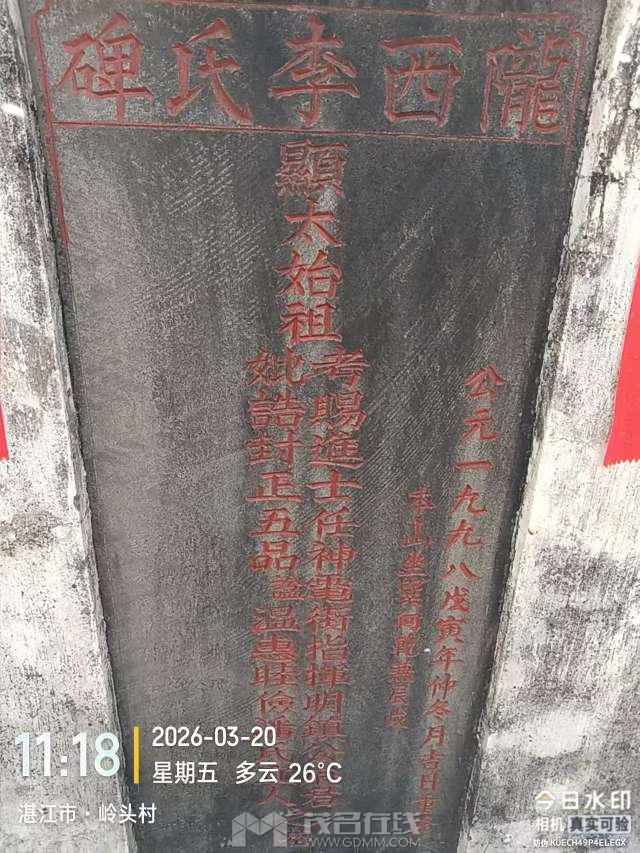 隴西李氏碑
公元一九九八戊寅年仲冬月吉日
本山坐巽向乾兼辰戌
顯太始祖
考賜進士任神電衛指揮明鎮公
妣誥封正五品謚温惠旺儉潘
11:18
2026-03-20
星期五 多云 26°C
湛江市·岭头村
今日水印
相机 真实可验
防伪 KUECH49P4ELEGX
茂名在线
WWW.GDMM.COM